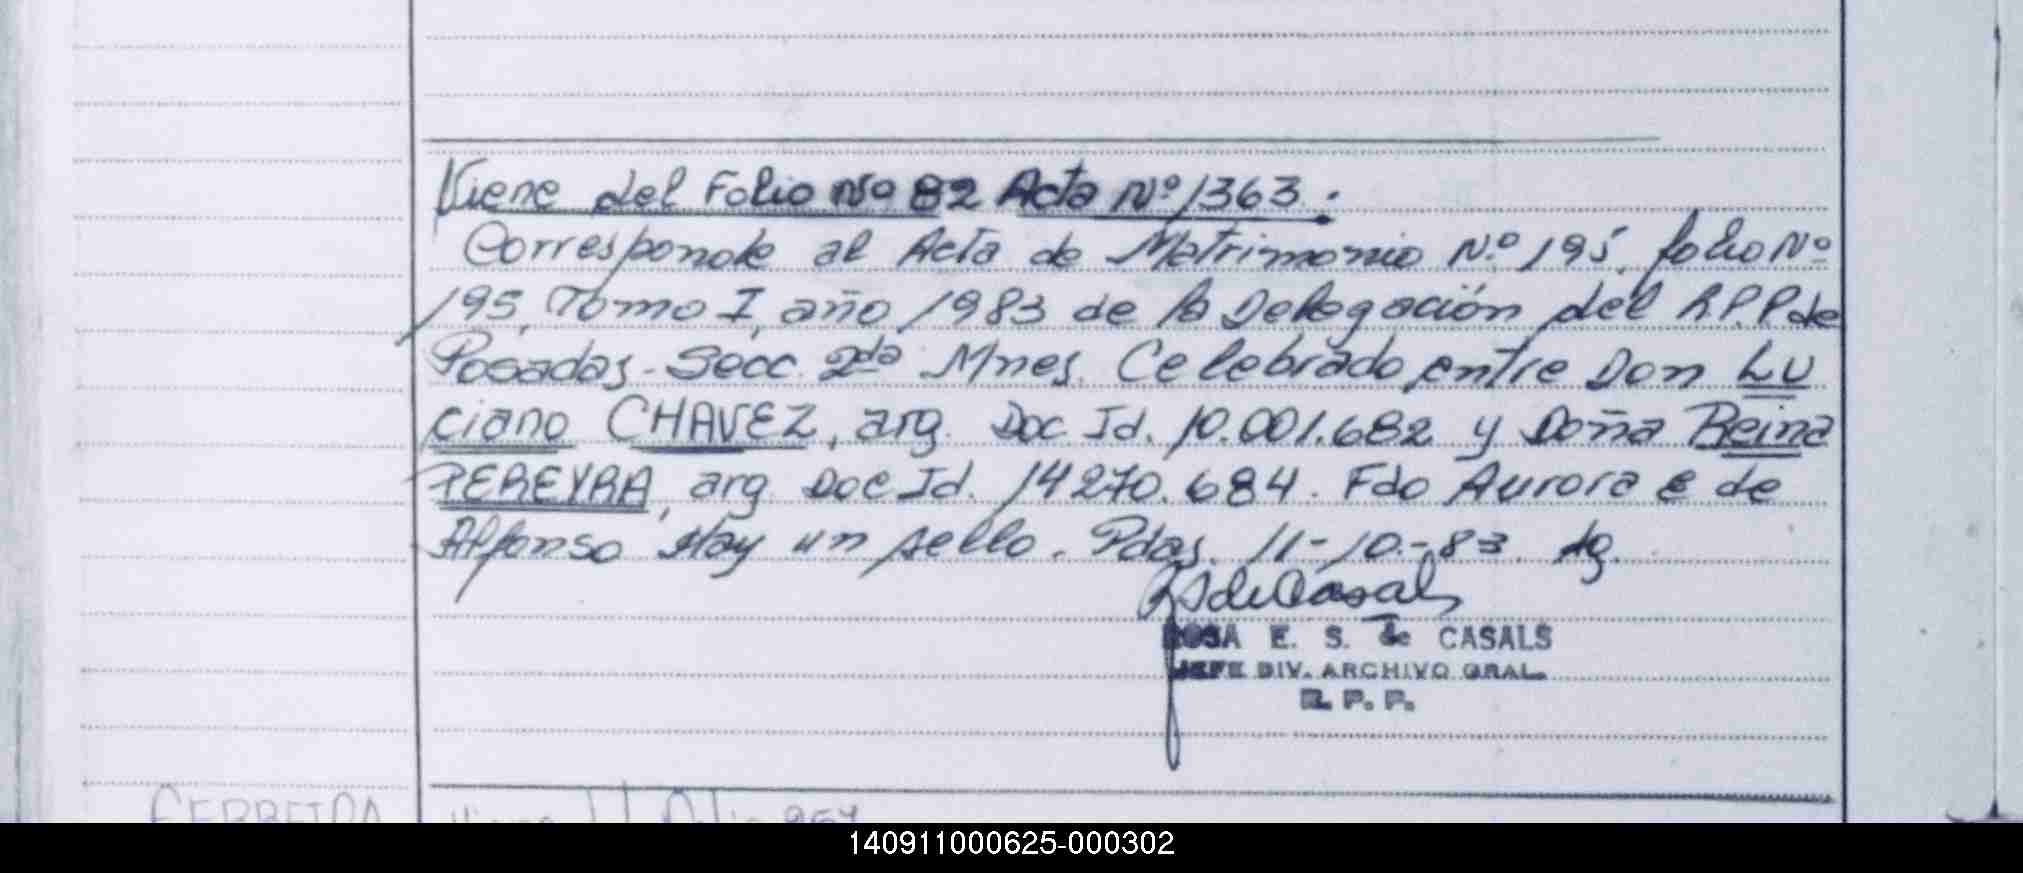 Viene del Folio Nº 82 Acta Nº 1363.
Corresponde al Acta de Matrimonio Nº 195, folio Nº
195, Tomo I, año 1983 de la Delegación del R.P.P de
Posadas - Secc. 2da Mnes. Celebrado entre Don Lu
ciano CHAVEZ, arg. Doc. Id. 10.001.682 y Doña Reina
PEREYRA, arg. Doc Id. 14270.684. Fdo Aurora E de
Alfonso Hay un sello. Pdas. 11-10-83.
ROSA E. S. de CASALS
JEFE DIV. ARCHIVO GRAL.
R. P. P.
FERREIRA
140911000625-000302